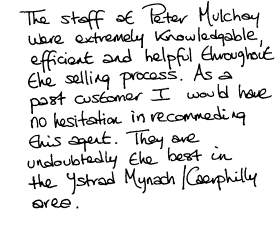 The staff at Peter Mulcahy
were extremely knowledgable,
efficient and helpful throughout
the selling process. As a
past customer I would have
no hesitation in recommeding
this agent. They are
undoubtedly the best in
the Ystrad Mynach/Caerphilly
area.